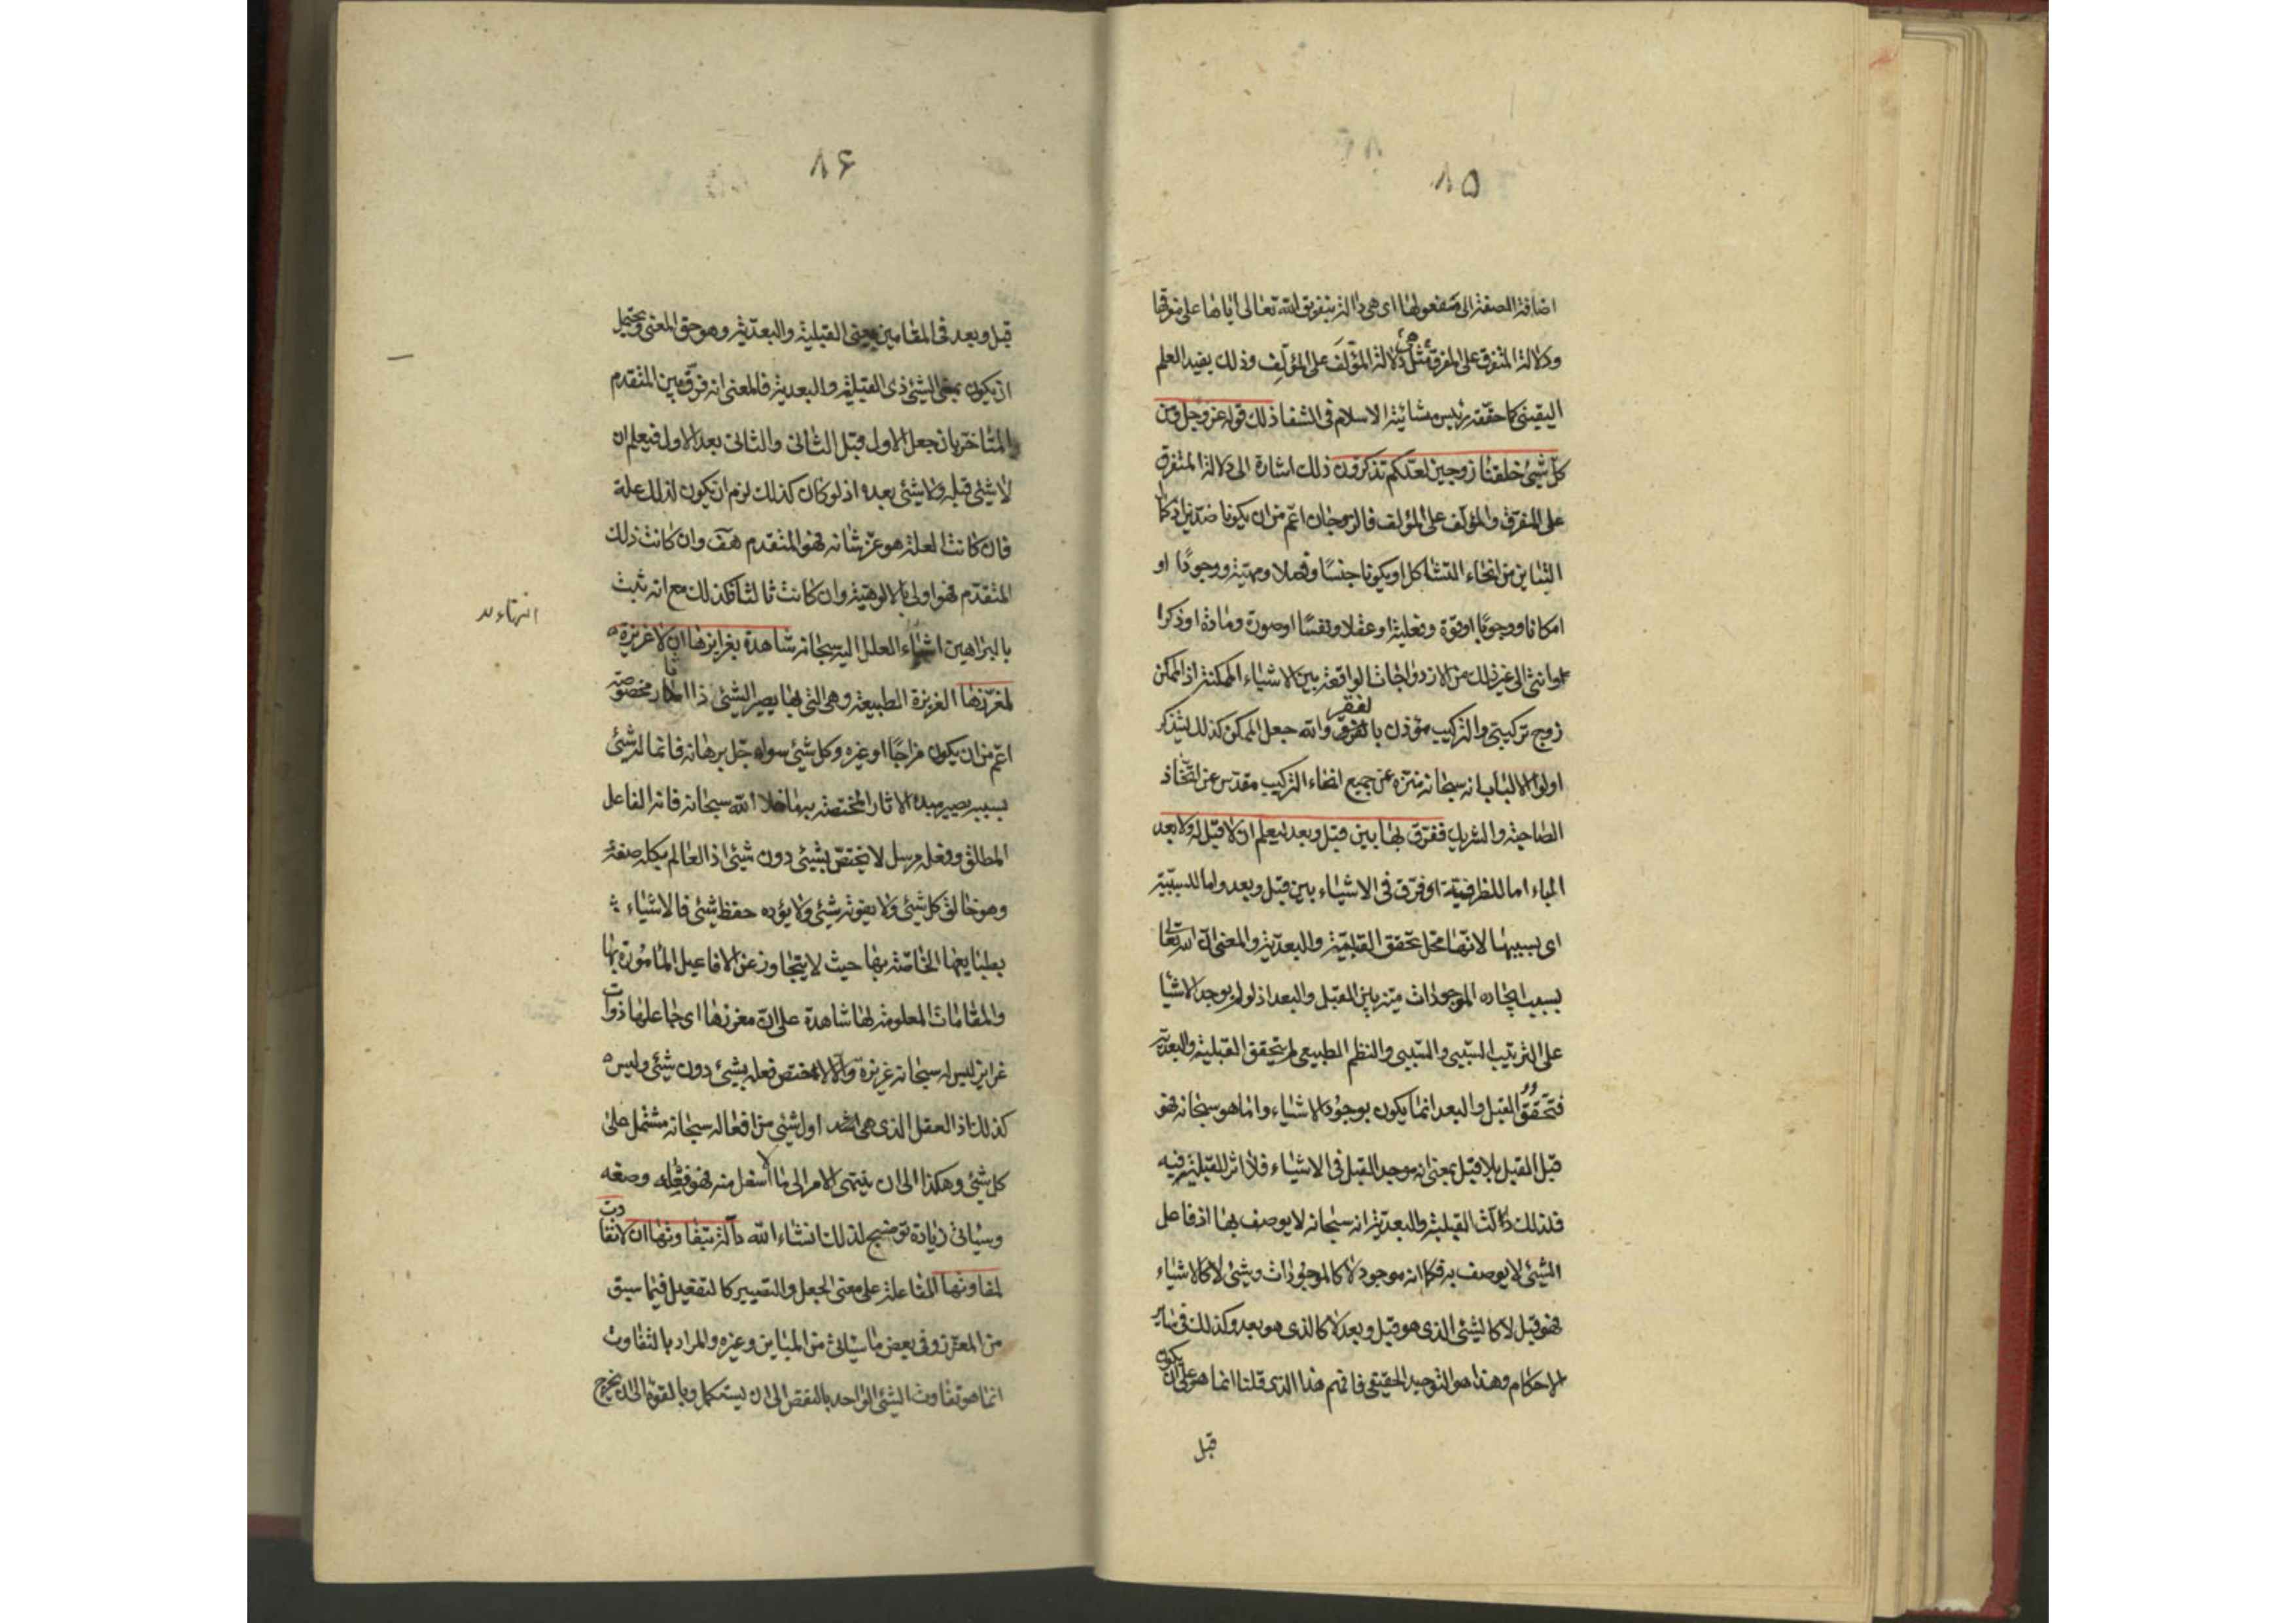 ۸۵
اضافة الصفة الى مفعولها اى هى دالة بتفريق الله تعالى اياها على مفرقها
ودلالة المتفرق على المفرق مثل دلالة المؤلَّف على المؤلِّف وذلك يفيد العلم
اليقينى كما حققه رئيس مشائية الاسلام فى الشفا ذلك قوله عز وجل ومن
كل شيئ خلقنا زوجين لعلكم تذكرون ذلك اشارة الى دلالة المتفرق
على المفرق والمؤلف على المؤلف فالزوجان اعم من ان يكونا ضدين
التباين من انحاء التشاكل او يكونا جنسًا وفصلا ومهية ووجودًا او
امكانا ووجوبًا او قوة وفعلية او عقلا ونفسًا او صورة ومادة او ذكرا
او انثى الى غير ذلك من الازدواجات الواقعة بين الاشياء الممكنة اذ الممكن
زوج تركيبى والتركيب مؤذن بالفقر والله جعل الممكن كذلك ليتذكر
اولوا الالباب انه سبحانه منزه عن جميع انحاء التركيب مقدس عن اتخاذ
الصاحبة والشريك ففرق بها بين قبل وبعد ليعلم ان لا قبل له ولا بعد
الباء اما للظرفية اى فرق فى الاشياء بين قبل وبعد واما للسببية
اى بسببها لانها محل تحقق القبلية والبعدية والمعنى ان الله تعالى
بسبب ايجاده الموجودات ميز بين القبل والبعد اذ لو لم يوجد الاشيا
على الترتيب السببى والمسببى والنظم الطبيعى لم يتحقق القبلية والبعدية
فتحقق القبل والبعد انما يكون بوجود الاشياء واما هو سبحانه فهو
قبل القبل بلا قبل بمعنى انه موجد القبل فى الاشياء فلا اثر للقبلية فيه
فلذلك دلت القبلية والبعدية انه سبحانه لا يوصف بها اذ فاعل
الشيئ لا يوصف به فكما انه موجود لا كالموجودات وشيئ لا كالاشياء
فهو قبل لا كالشيئ الذى هو قبل وبعد لا كالذى هو بعد وكذلك فى ساير
الاحكام وهذا هو التوحيد الحقيقى فافهم هذا الذى قلنا انما هو على ان يكون
قبل
۸۶
قبل وبعد فى المقامين بمعنى القبلية والبعدية وهو حق المعنى ويحتمل
ان يكون بمعنى الشيئ ذى القبلية والبعدية فالمعنى انه فرق بين المتقدم
والمتاخر بان جعل الاول قبل الثانى والثانى بعد الاول فيعلم ان
لا شيئ قبله ولا شيئ بعده اذ لو كان كذلك لزم ان يكون لذلك علة
فان كانت العلة هو عز شانه فهو المتقدم هف وان كانت ذلك
المتقدم فهو اولى بالالوهية وان كانت ثالثا فكذلك مع انه ثبت
بالبراهين انتهاء العلل اليه سبحانه شاهدة بغرايزها ان لا غريزة
لمغرزها الغريزة الطبيعة وهى التى بها يصير الشيئ ذا اثار مخصوصة
اعم من ان يكون مزاجًا او غيره وكل شيئ سواه جل برهانه فانما له شيئ
بسببه يصير مبدء الاثار المختصة به ما خلا الله سبحانه فانه الفاعل
المطلق وفعله مرسل لا يختص بشيئ دون شيئ اذ العالم بكله صنعه
وهو خالق كل شيئ ولا يفوته شيئ ولا يؤده حفظ شيئ فالاشياء
بطبايعها الخاصة بها حيث لا يتجاوز عن الافاعيل المامورة بها
والمقامات المعلومة لها شاهدة على ان مغرزها اى جاعلها ذوات
غرايز ليس له سبحانه غريزة والا لاختص فعله بشيئ دون شيئ وليس
كذلك اذ العقل الذى هو اول شيئ من افعاله سبحانه مشتمل على
كل شيئ وهكذا الى ان ينتهى الامر الى ما لا اسفل منه فهو فعله وصنعه
وسيأتى زيادة توضيح لذلك انشاء الله دالة بتفاوتها ان لا تفاوت
لمفاوتها المفاعلة على معنى الجعل والتصيير كالتفعيل فيما سبق
من المغرز وفى بعض ما سيأتى من المباين وغيره والمراد بالتفاوت
انما هو تفاوت الشيئ الواحد بالنقص الى ان يستكمل وبالقوة الى ان يخرج
انتهاء